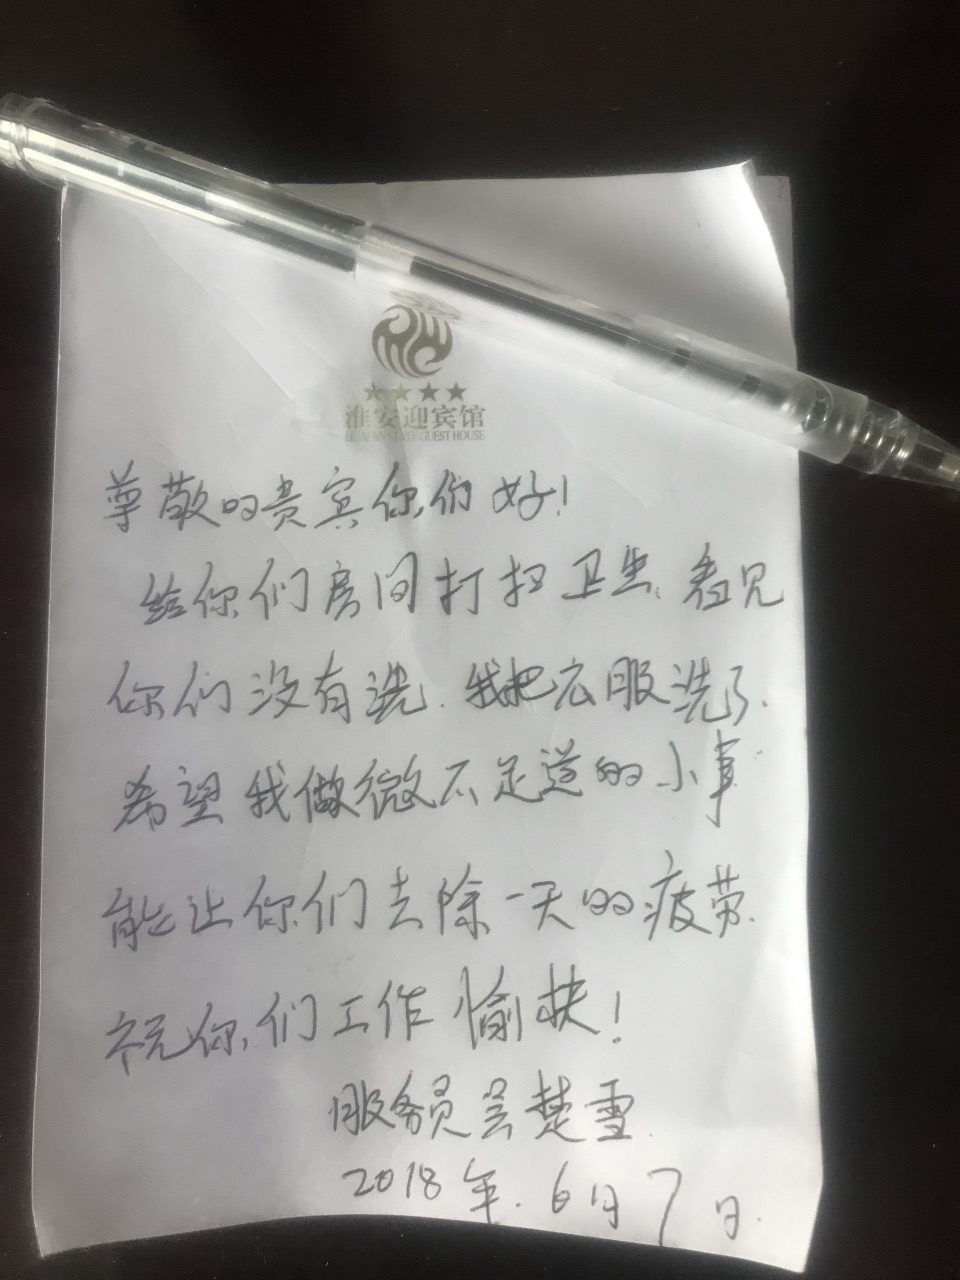 ★★★★
淮安迎宾馆
HUAI'AN STATE GUEST HOUSE
尊敬的贵宾你们好!
给你们房间打扫卫生.看见
你们没有洗.我把衣服洗了.
希望我做微不足道的小事
能让你们去除一天的疲劳.
祝你们工作愉快!
服务员吴楚雪.
2018年.6月7日.